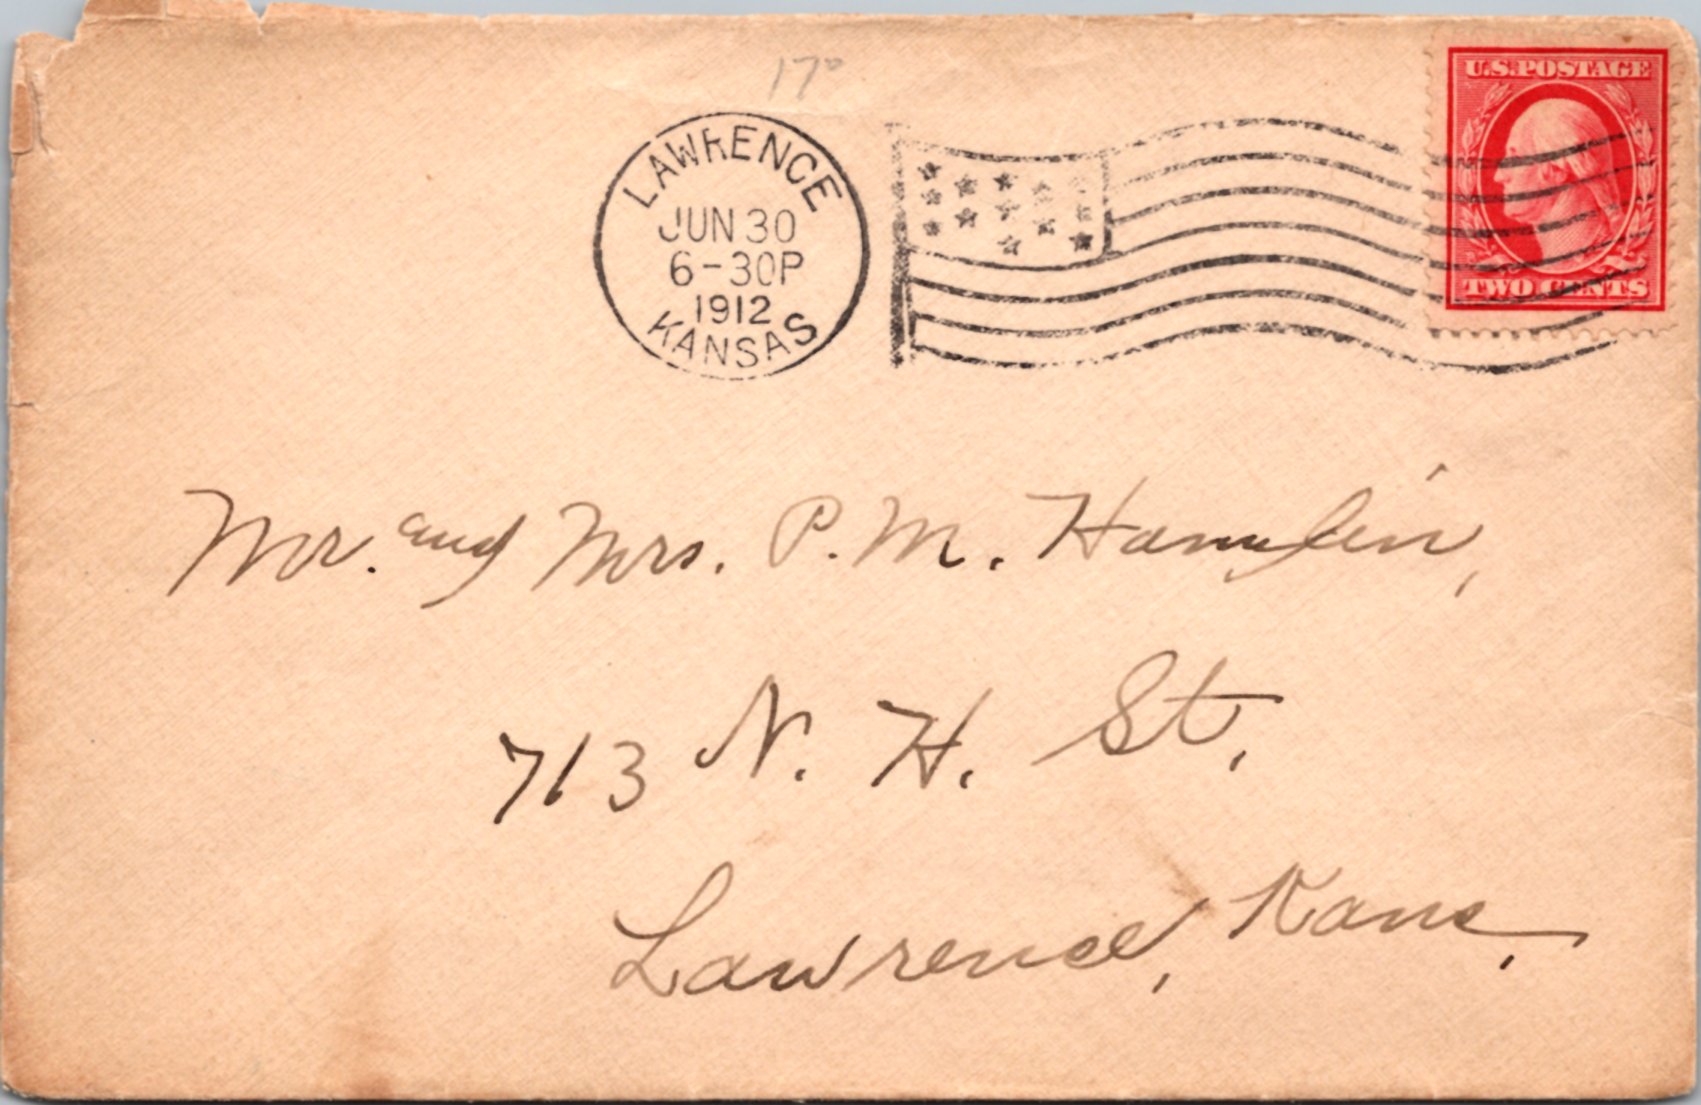 17°
U.S.POSTAGE
LAWRENCE
JUN 30
6-30P
1912
KANSAS
TWO CENTS
Mr. and Mrs. P. M. Hamlin,
713 N. H. St.
Lawrence, Kans.